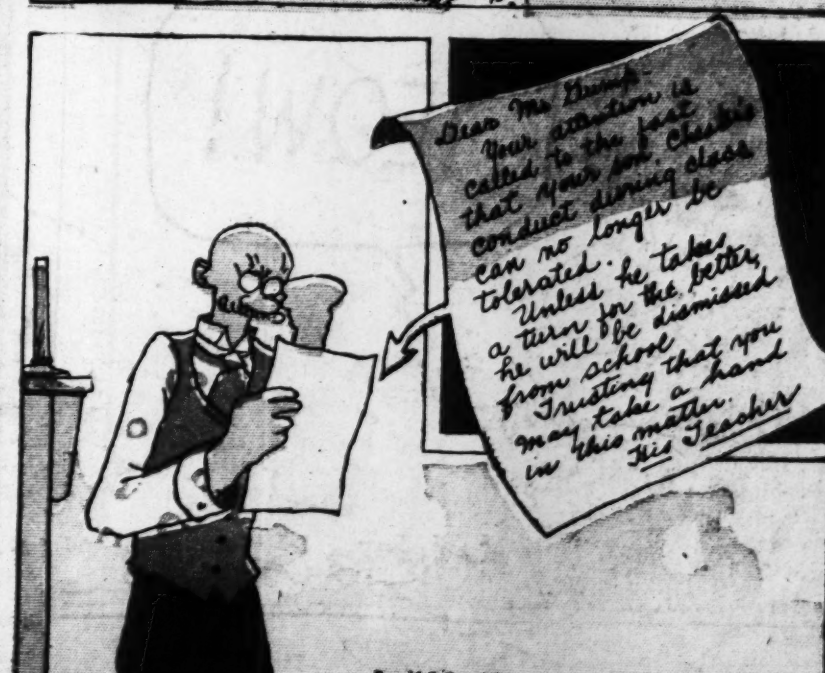 Dear Mr Gump-
Your attention is
called to the fact
that your son, Chester's
conduct during class
can no longer be
tolerated.
Unless he takes
a turn for the better,
he will be dismissed
from school
Trusting that you
may take a hand
in this matter.
His Teacher